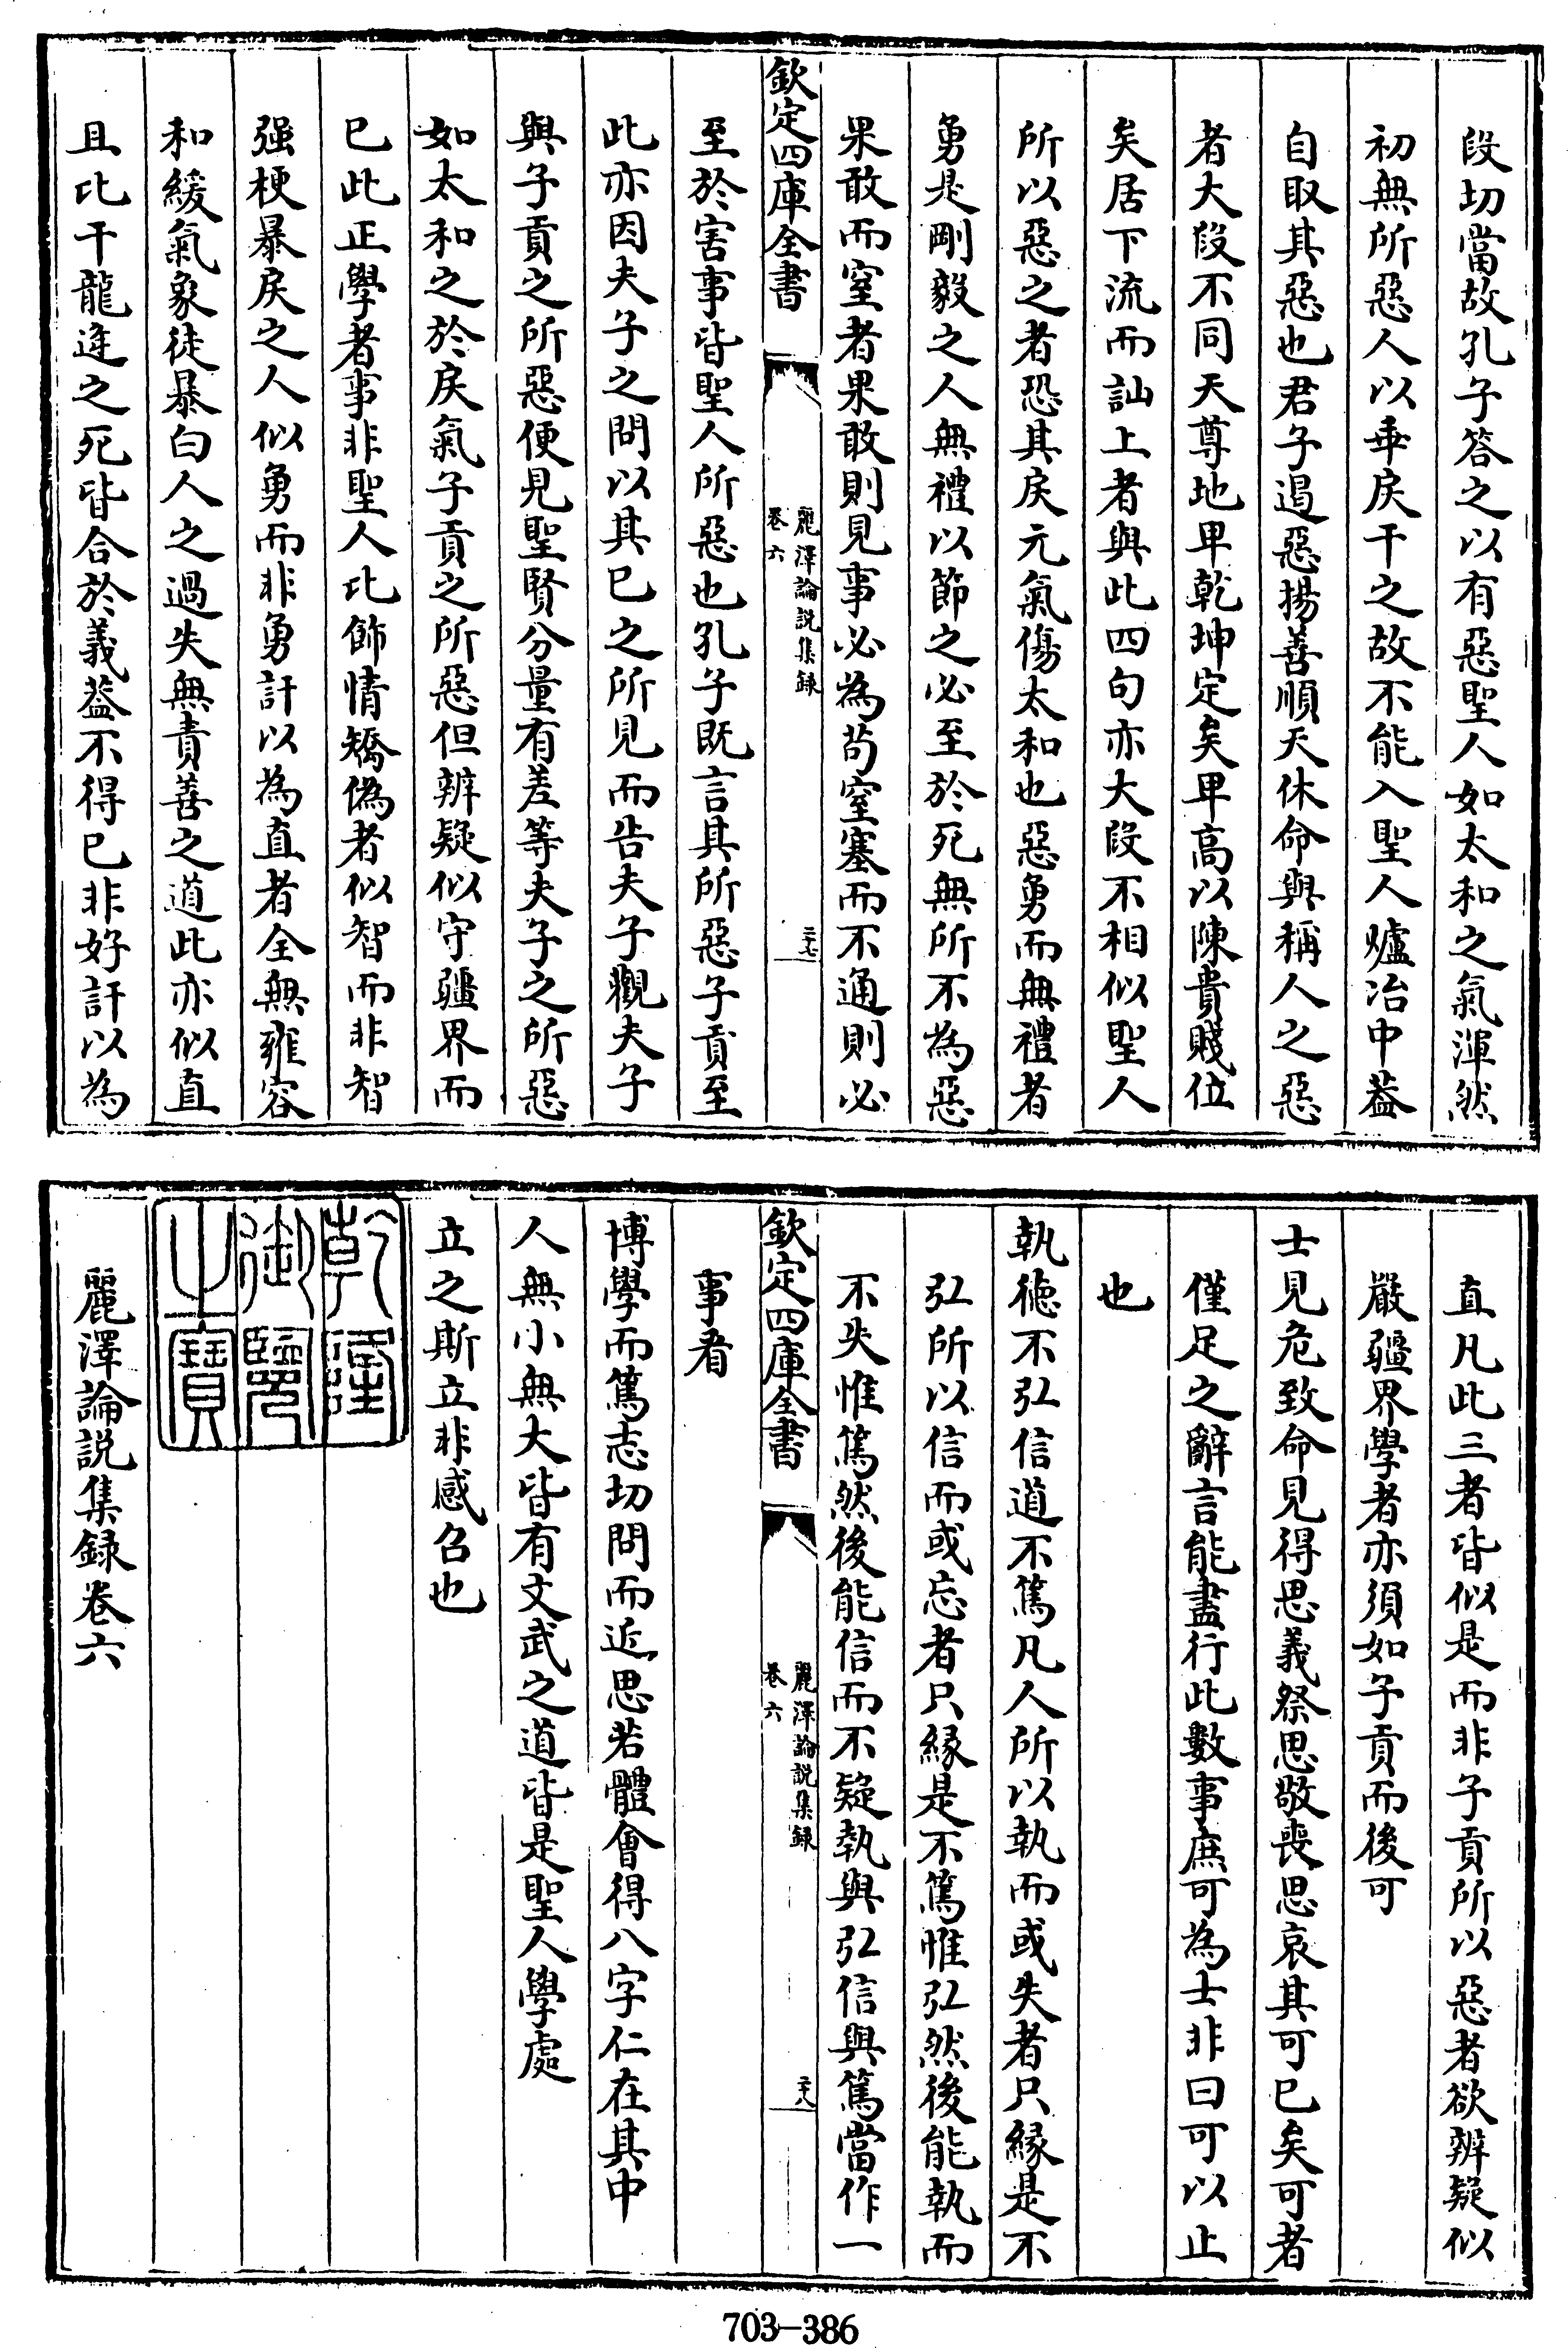 段切當故孔子答之以有惡聖人如太和之氣渾然
初無所惡人以乖戾干之故不能入聖人爐冶中葢
自取其惡也君子遏惡揚善順天休命與稱人之惡
者大段不同天尊地卑乾坤定矣卑高以陳貴賤位
矣居下流而訕上者與此四句亦大段不相似聖人
所以惡之者恐其戾元氣傷太和也惡勇而無禮者
勇是剛毅之人無禮以節之必至於死無所不為惡
果敢而窒者果敢則見事必為茍窒塞而不通則必
欽定四庫全書
麗澤論説集録
卷六
二十七
至於害事皆聖人所惡也孔子既言其所惡子貢至
此亦因夫子之問以其已之所見而告夫子觀夫子
與子貢之所惡便見聖賢分量有差等夫子之所惡
如太和之於戾氣子貢之所惡但辨疑似守疆界而
已此正學者事非聖人比飾情矯偽者似智而非智
强梗暴戾之人似勇而非勇訐以為直者全無雍容
和緩氣象徒暴白人之過失無責善之道此亦似直
且比干龍逄之死皆合於義葢不得已非好訐以為
直凡此三者皆似是而非子貢所以惡者欲辨疑似
嚴疆界學者亦須如子貢而後可
士見危致命見得思義祭思敬喪思哀其可已矣可者
僅足之辭言能盡行此數事庶可為士非曰可以止
也
執徳不弘信道不篤凡人所以執而或失者只縁是不
弘所以信而或忘者只縁是不篤惟弘然後能執而
不失惟篤然後能信而不疑執與弘信與篤當作一
欽定四庫全書
麗澤論説集録
卷六
二十八
事看
博學而篤志切問而近思若體會得八字仁在其中
人無小無大皆有文武之道皆是聖人學處
立之斯立非感召也
乾隆
御覽
之寶
麗澤論説集録卷六
703-386